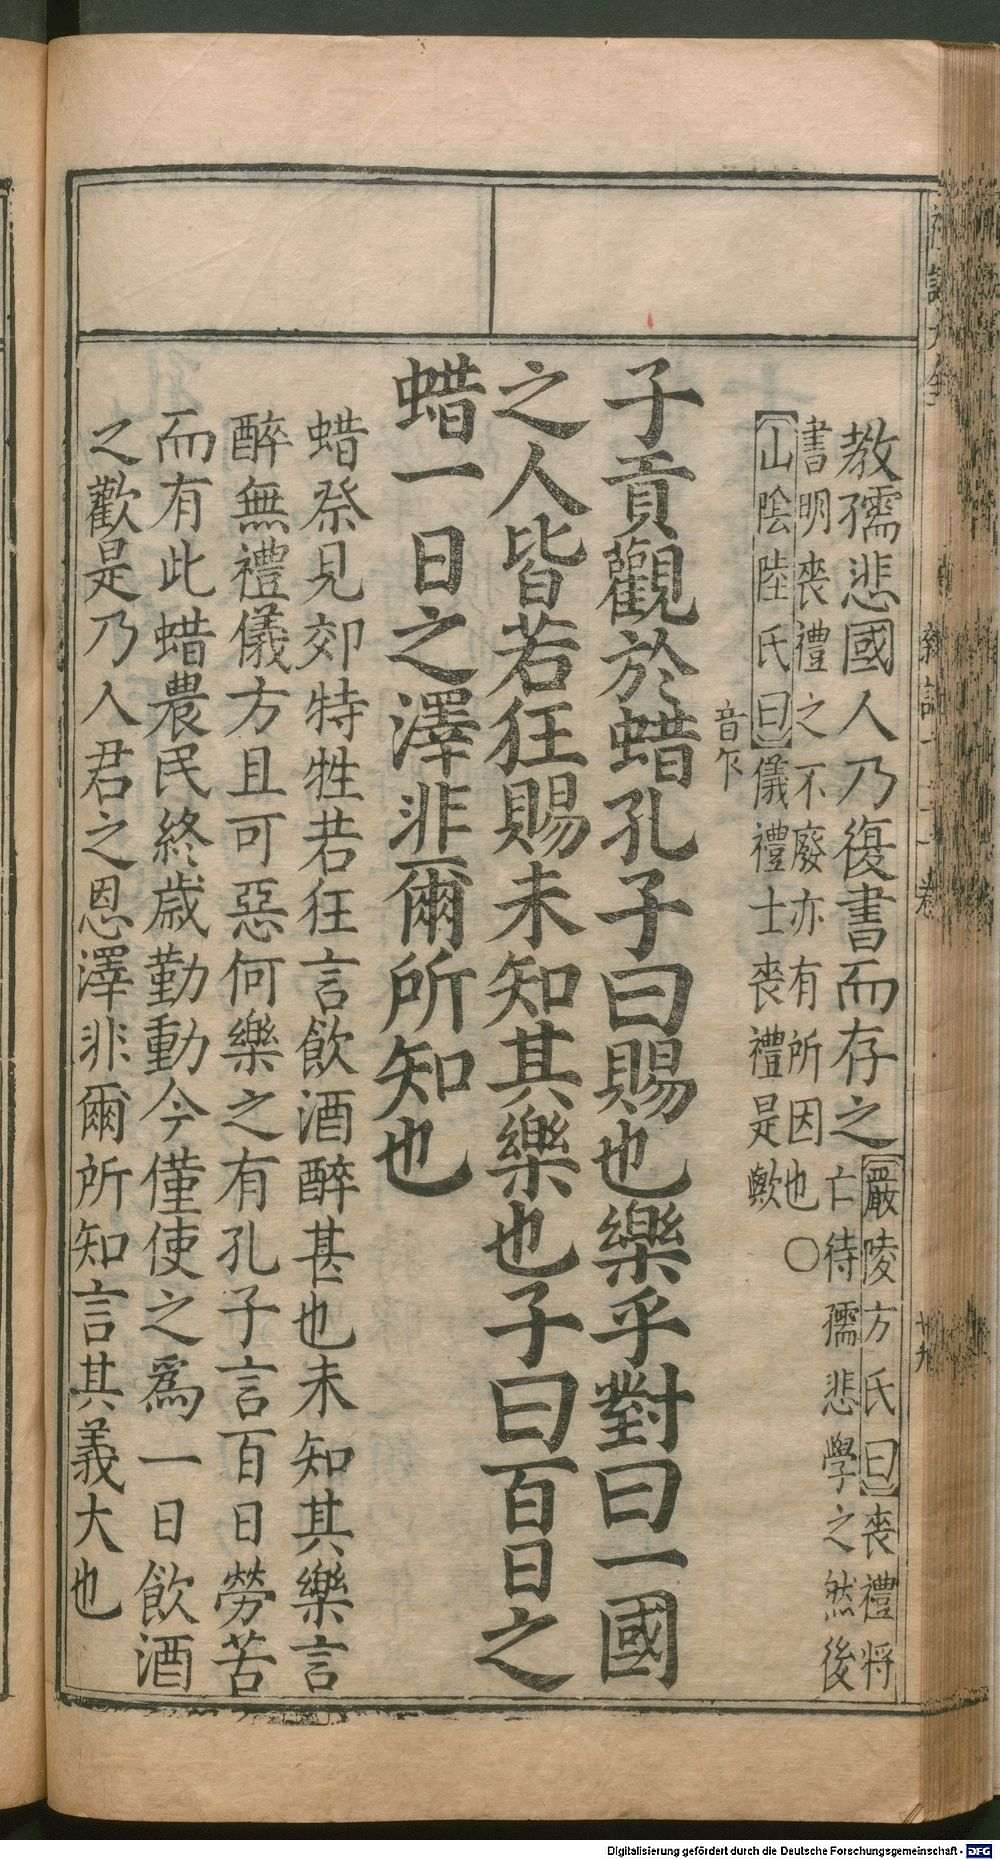 教孺悲國人乃復書而存之【嚴陵方氏曰】喪禮將
亡待孺悲學之然後
書明喪禮之不廢亦有所因也○
【山陰陸氏曰】儀禮士喪禮是歟
子貢觀於蜡孔子曰賜也樂乎對曰一國
音乍
之人皆若狂賜未知其樂也子曰百日之
蜡一日之澤非爾所知也
蜡祭見郊特牲若狂言飲酒醉甚也未知其樂言
醉無禮儀方且可惡何樂之有孔子言百日勞苦
而有此蜡農民終歲勤動今僅使之爲一日飲酒
之歡是乃人君之恩澤非爾所知言其義大也
Digitalisierung gefördert durch die Deutsche Forschungsgemeinschaft - DFG